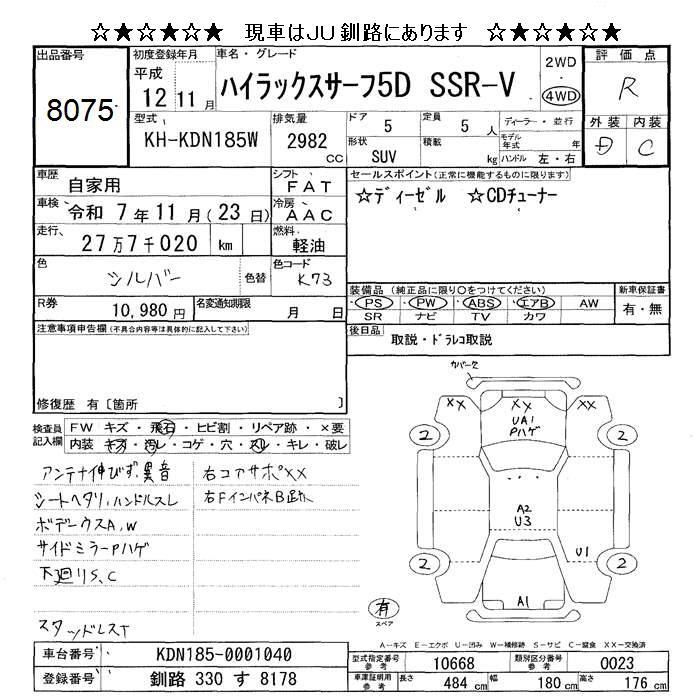 ☆★☆★☆★ 現車はJU釧路にあります ☆★☆★☆★
出品番号
8075
初度登録年月
平成
12年11月
車名・グレード
ハイラックスサーフ5D SSR-V
2WD
4WD
評価点
R
外装 内装
D C
型式
KH-KDN185W
排気量
2982
CC
ドア
5
定員
5人
形状
SUV
積載
kg
ディーラー・並行
モデル年式 年
ハンドル 左・右
車歴
自家用
シフト
FAT
車検
令和 7年11月(23日)
冷房
AAC
走行、
27万7千020 km
燃料
軽油
色
シルバー
色替
色コード
K73
R券
10,980円
名変通知期限
月 日
セールスポイント(正常に機能するものに限ります)
☆ディーゼル ☆CDチューナー
装備品(純正品に限り○をつけてください)
PS PW ABS エアB AW
SR ナビ TV カワ
新車保証書
有・無
後日品
取説・ドラレコ取説
注意事項申告欄(不具合内容等は具体的に記入して下さい)
修復歴 有〔箇所 〕
検査員記入欄
FW キズ・飛石・ヒビ割・リペア跡・×要
内装・キズ・汚レ・コゲ・穴・スレ・キレ・破レ
アンテナ伸びず、異音
シートヘタリ、ハンドルスレ
ボデーウスA、W
サイドミラーPハゲ
下廻りS、C
スタッドレスT
右コアサポXX
右FインパネB
XX
XX
XX
UA1
Pハゲ
2
2
A2
U3
U1
2
2
A1
有
スペア
A-キズ E-エクボ U-凹み W-補修跡 S-サビ C-腐食 XX-交換済
車台番号
KDN185-0001040
登録番号
釧路 330 す 8178
型式指定番号
参考
10668
類別区分番号
参考
0023
車庫証明用
参考
長さ
484 cm
幅
180 cm
高さ
176 cm